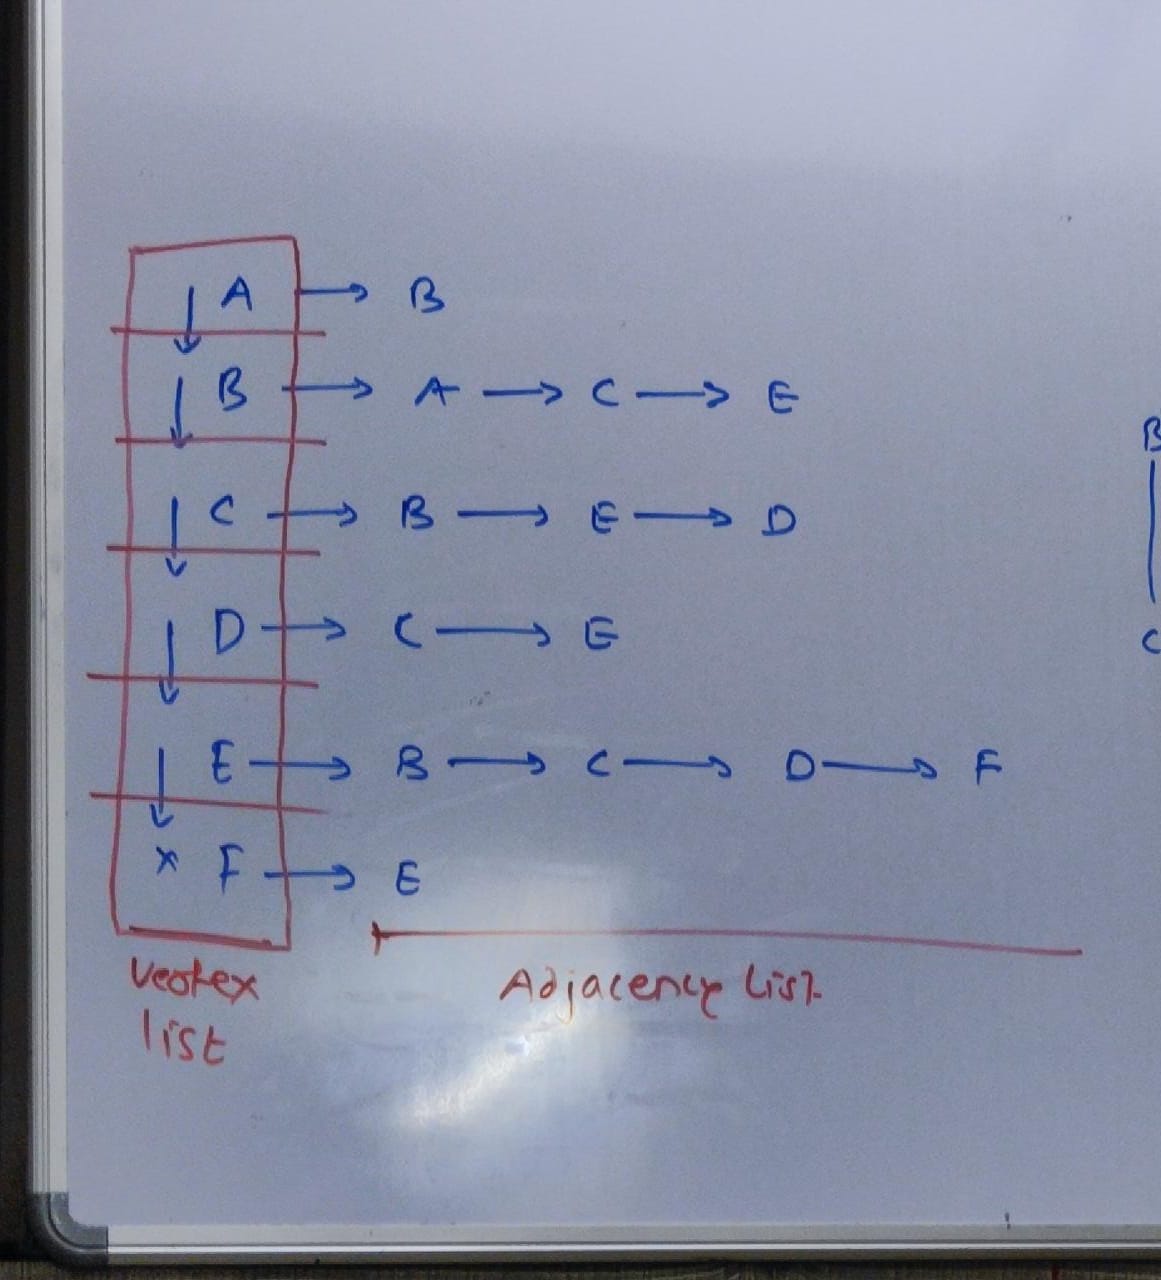 A → B
B → A → C → E
C → B → E → D
D → C → E
E → B → C → D → F
x F → E
Vertex
list
Adjacency List
B
C